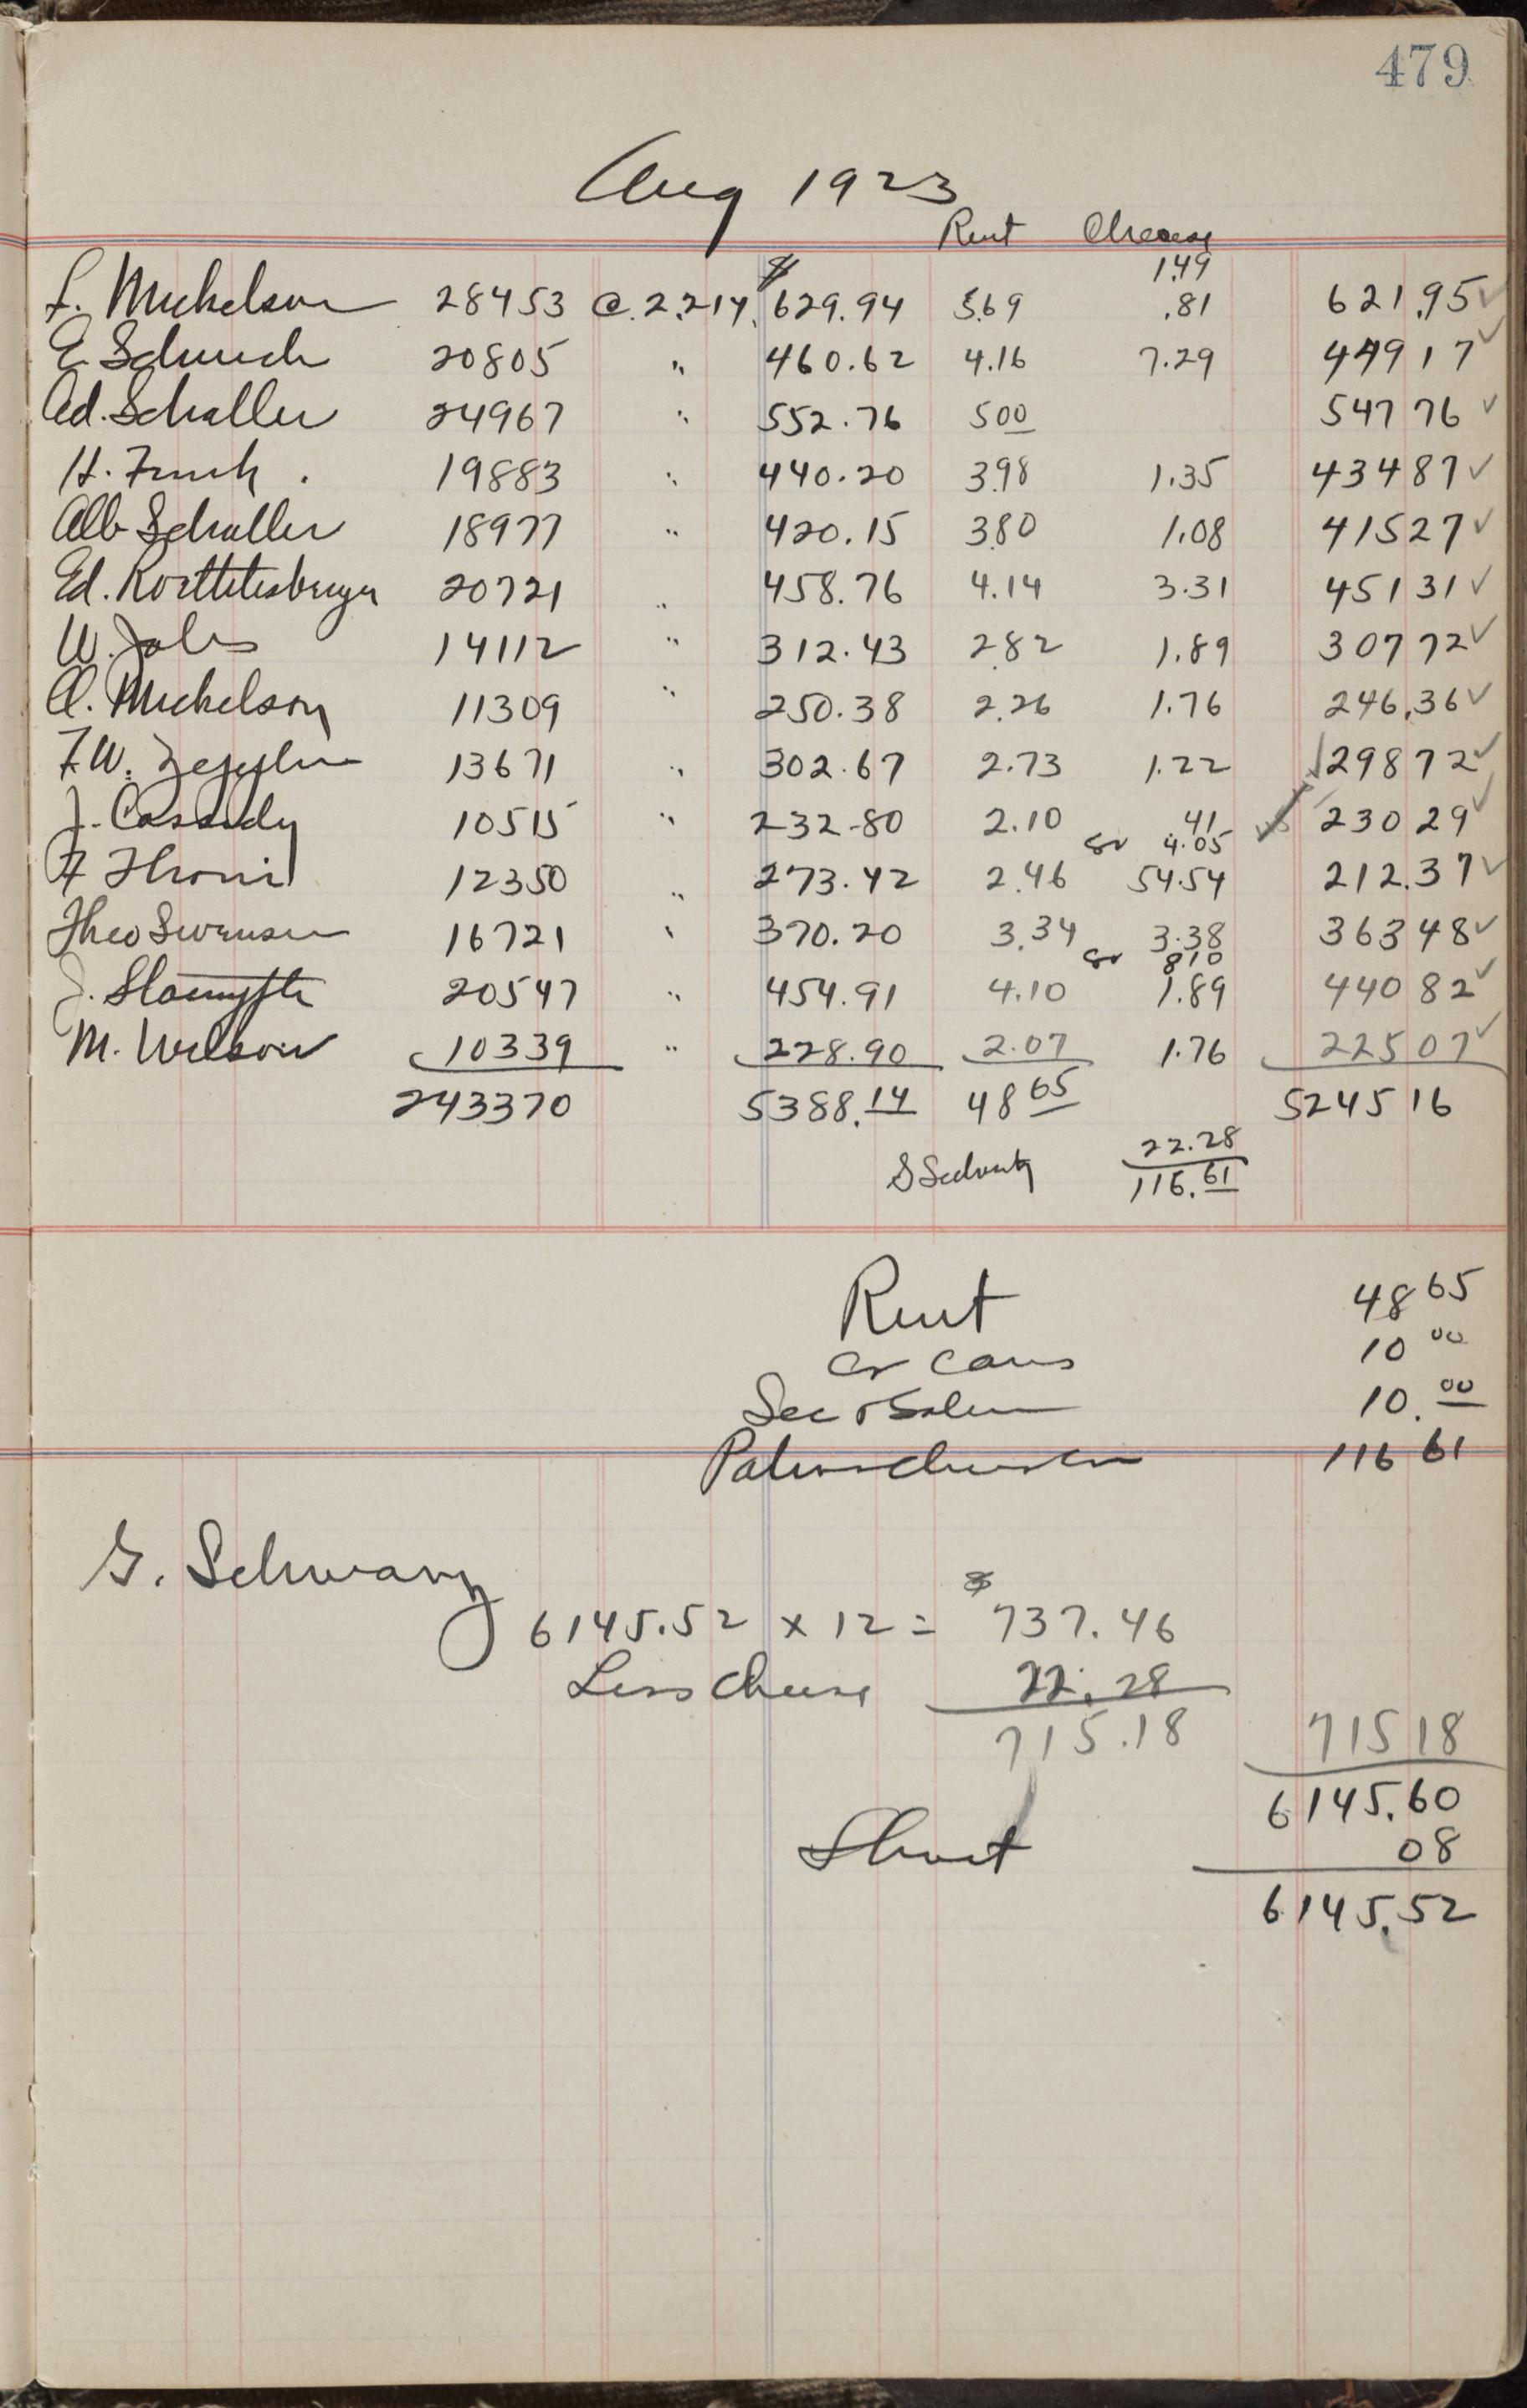 479
Aug 1923
Rent Cheese
1.49
L. Mickelson 28453 @ 2.214 $629.94 5.69 .81 621.95 ✓
E Schuch 20805 " 460.62 4.16 7.29 449 17 ✓
Ed. Schaller 24967 " 552.76 500 547 76 ✓
H. 19883 " 440.20 3.98 1.35 434 87 ✓
Alb Schaller 18977 " 420.15 3.80 1.08 415 27 ✓
Ed. 20721 " 458.76 4.14 3.31 451 31 ✓
W. 14112 " 312.43 2.82 1.89 307 72 ✓
A. Mickelson 11309 " 250.38 2.26 1.76 246.36 ✓
F.W. 13671 " 302.67 2.73 1.22 ✓ 298 72 ✓
J. Cassidy 10515 " 232.80 2.10 41 ✓ 230 29 ✓
4.05
F Thoni 12350 " 273.42 2.46 54.54 212.37 ✓
Theo Swensen 16721 " 370.20 3.34 3.38 363 48 ✓
8 10
J. 20547 " 454.91 4.10 1.89 440 82 ✓
M. Wilson 10339 " 228.90 2.07 1.76 225 07 ✓
243370 5388.14 48 65 5245 16
22.28
116.61
Rent 48 65
cr cans 10 00
Sec 10.00
116 61
G. Schwarz
6145.52 x 12 = $737.46
Less Cheese 22.28
715.18 715 18
6145.60
Short 08
6145.52